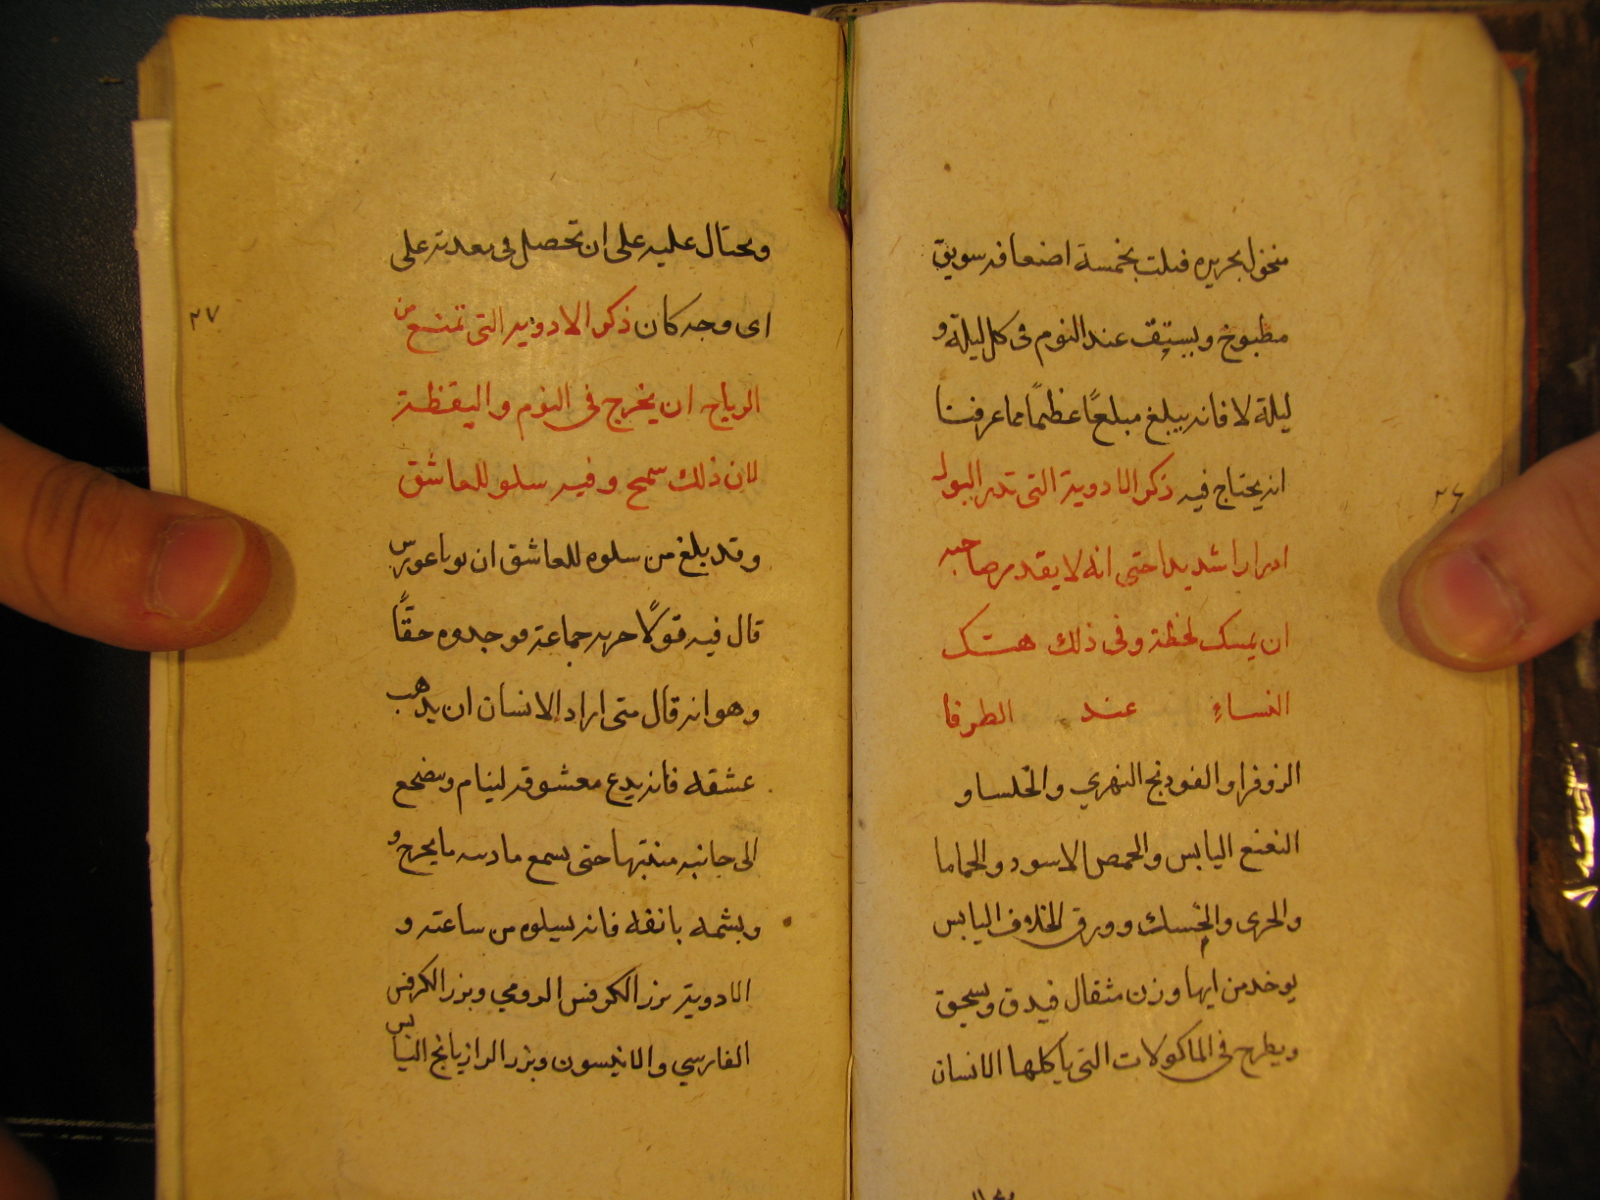 منخولة بحريره فيلت بخمسة اضعافه سويق
مطبوخ ويستف عند النوم فى كل ليلة و
ليلة لا فانه يبلغ مبلغًا عظيمًا مما عرفنا
انه يحتاج فيه ذكر الادوية التى تدر البول
ادرارا شديدا حتى انه لا يقدر صاحبه
ان يمسك لحظة وفى ذلك هتك
النساء عند الظرفا
الزوفرا والفودنج النهري و
النعنع اليابس والحمص الاسود والحماما
والحرى والحسك وورق الخلاف اليابس
يوخد من ايها وزن مثقال فيدق ويسحق
ويطرح فى الماكولات التى ياكلها الانسان
٢٦
ويحتال عليه على ان تحصل فى معدته على
اى وجه كان ذكر الادويه التى تمنع من
الرياح ان يخرج فى النوم واليقظة
لان ذلك سمج وفيه سلو للعاشق
وقد بلغ من سلوه للعاشق ان
قال فيه قولًا جربه جماعة فوجدوه حقًّا
وهو انه قال متى اراد الانسان ان يذهب
عشقه فانه يدع معشوقه لينام ويضجع
الى جانبه منتبها حتى يسمع ما يخرج و
ويشمه بانفه فانه يسلوه من ساعته و
الادوية بزر الكرفس الرومي وبزر الكرفس
الفارسي والانيسون وبزر الرازيانج اليابس
٢٧